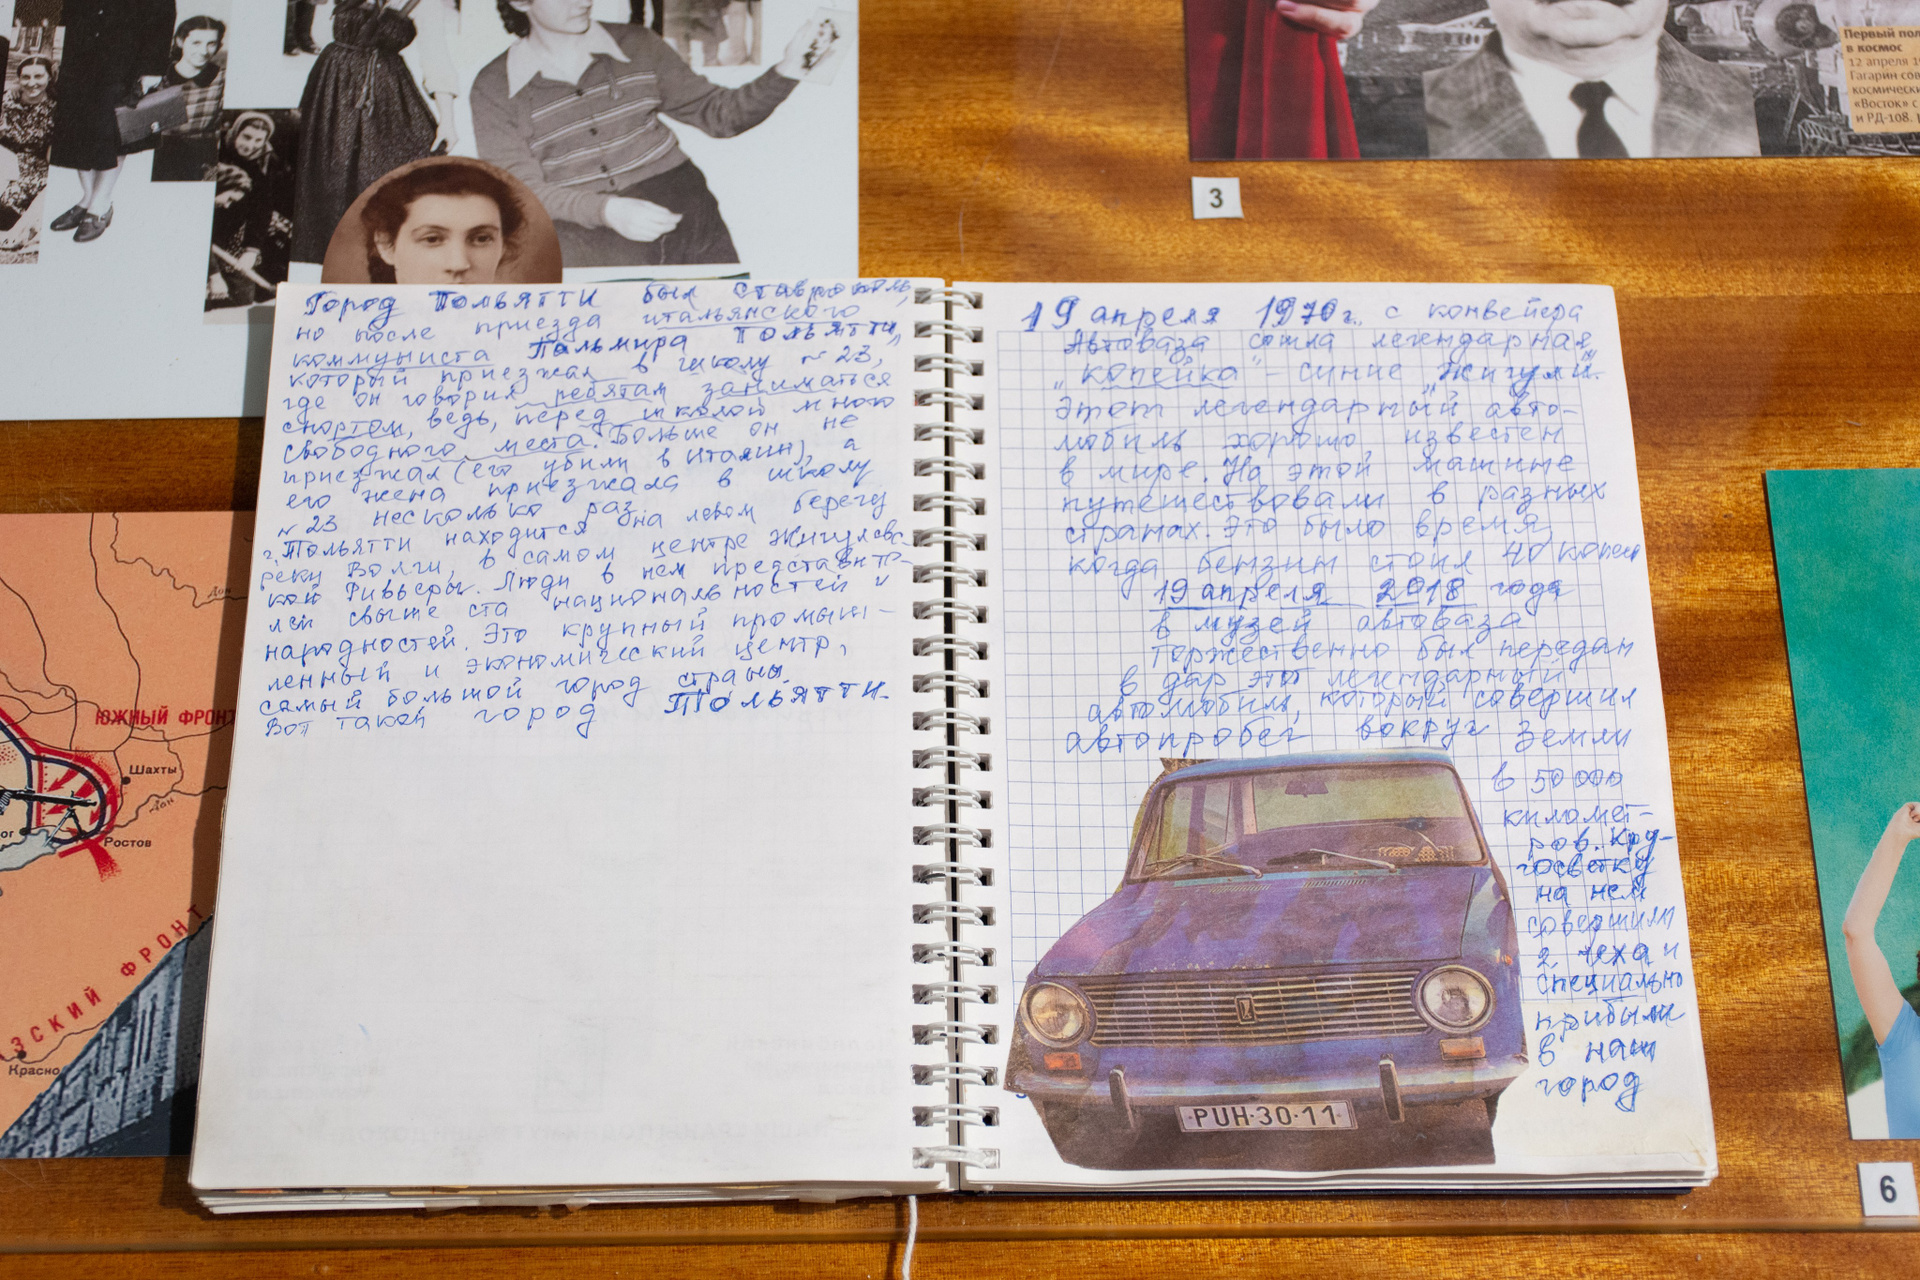 Город Тольятти был Ставрополь,
но после приезда итальянского
коммуниста Пальмира Тольятти,
который приезжал в школу №23,
где он говорил ребятам заниматься
спортом, ведь, перед школой много
свободного места. Больше он не
приезжал (его убили в Италии), а
его жена приезжала в школу
№23 несколько раз.
г. Тольятти находится на левом берегу
реки Волги, в самом центре Жигулевс-
кой Ривьеры. Люди в нем представите-
лей свыше ста национальностей и
народностей. Это крупный промыш-
ленный и экономический центр,
самый большой город страны.
Вот такой город Тольятти.
19 апреля 1970 г. с конвейера
Автоваза сошла легендарная
„копейка" - синие „Жигули".
Этот легендарный авто-
мобиль хорошо известен
в мире. На этой машине
путешествовали в разных
странах. Это было время,
когда бензин стоил 40 копеек
19 апреля 2018 года
в музей автоваза
торжественно был передан
в дар этот легендарный
автомобиль, который совершил
автопробег вокруг Земли
в 50 000
километ-
ров. Кру-
госветку
на нем
совершили
2 чеха и
специально
прибыли
в наш
город
PUH·30·11
3
6
Первый пол
в космос
12 апреля 19
Гагарин сов
космически
«Восток» с
и РД-108.
ЮЖНЫЙ ФРОНТ
Шахты
Дон
Дон
Ростов
ог
ЗСКИЙ ФРОНТ
Красно